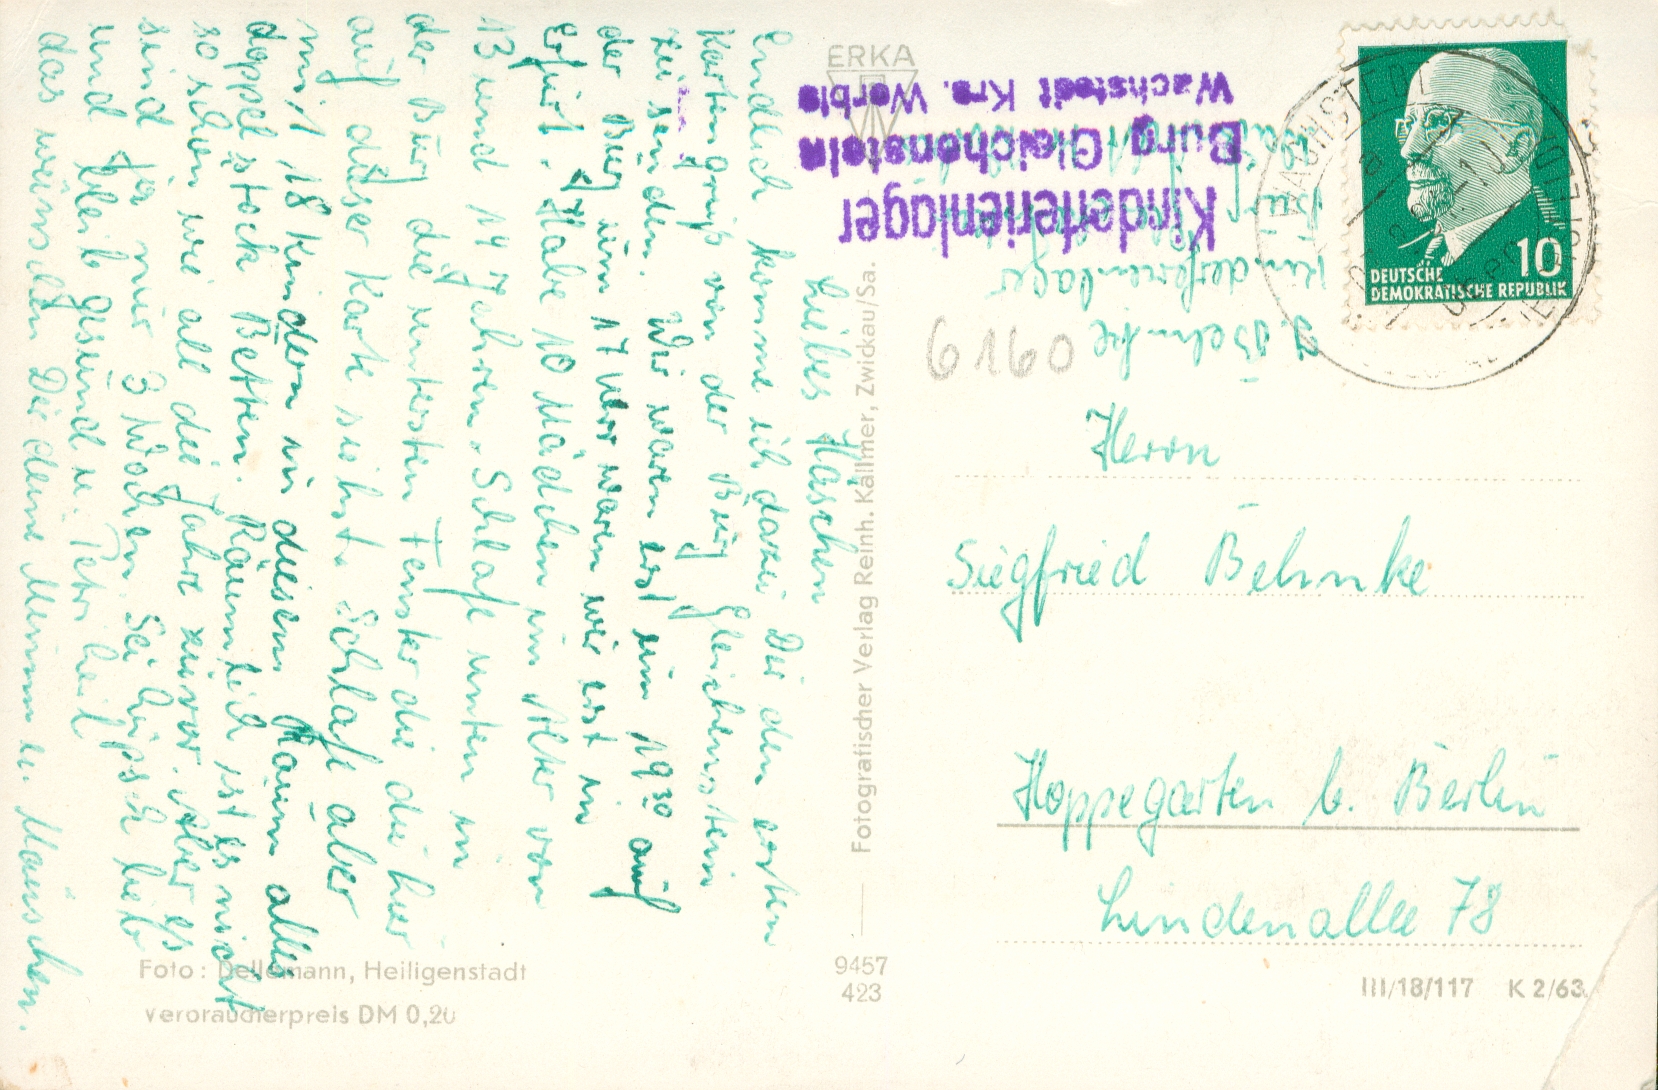 Liebes Häschen
Endlich komme ich dazu Dir den ersten
Kartengruß von der Burg Gleichenstein
zu senden. Wir waren erst um 19³⁰ auf
der Burg um 17 Uhr waren wir erst in
Erfurt. Habe 10 Mädchen im Alter von
13 und 14 Jahren. Schlafe unten in
der Burg die untersten Fenster die du hier
auf dieser Karte siehst. Schlafe aber
mit 18 Kindern in diesem Raum alles
doppelstock Betten. Räumlich ist es nicht
so schön wie all die Jahre zuvor. Aber es
sind ja nur 3 Wochen. Sei hübsch lieb
und bleib gesund u.
das wünschen Dir deine u. Mäuschen.
ERKA
Fotografischer Verlag Reinh. Kallmer, Zwickau/Sa.
Kinderferienlager
Burg Gleichenstein
Wachstedt Krs. Worbis
J. Behnke
Kinderferienlager
Burg
WACHSTEDT
10
DEUTSCHE
DEMOKRATISCHE REPUBLIK
6160
Herrn
Siegfried Behnke
Hoppegarten b. Berlin
Lindenallee 78
Foto: Dellemann, Heiligenstadt
Verbraucherpreis DM 0,20
9457
423
III/18/117 K 2/63